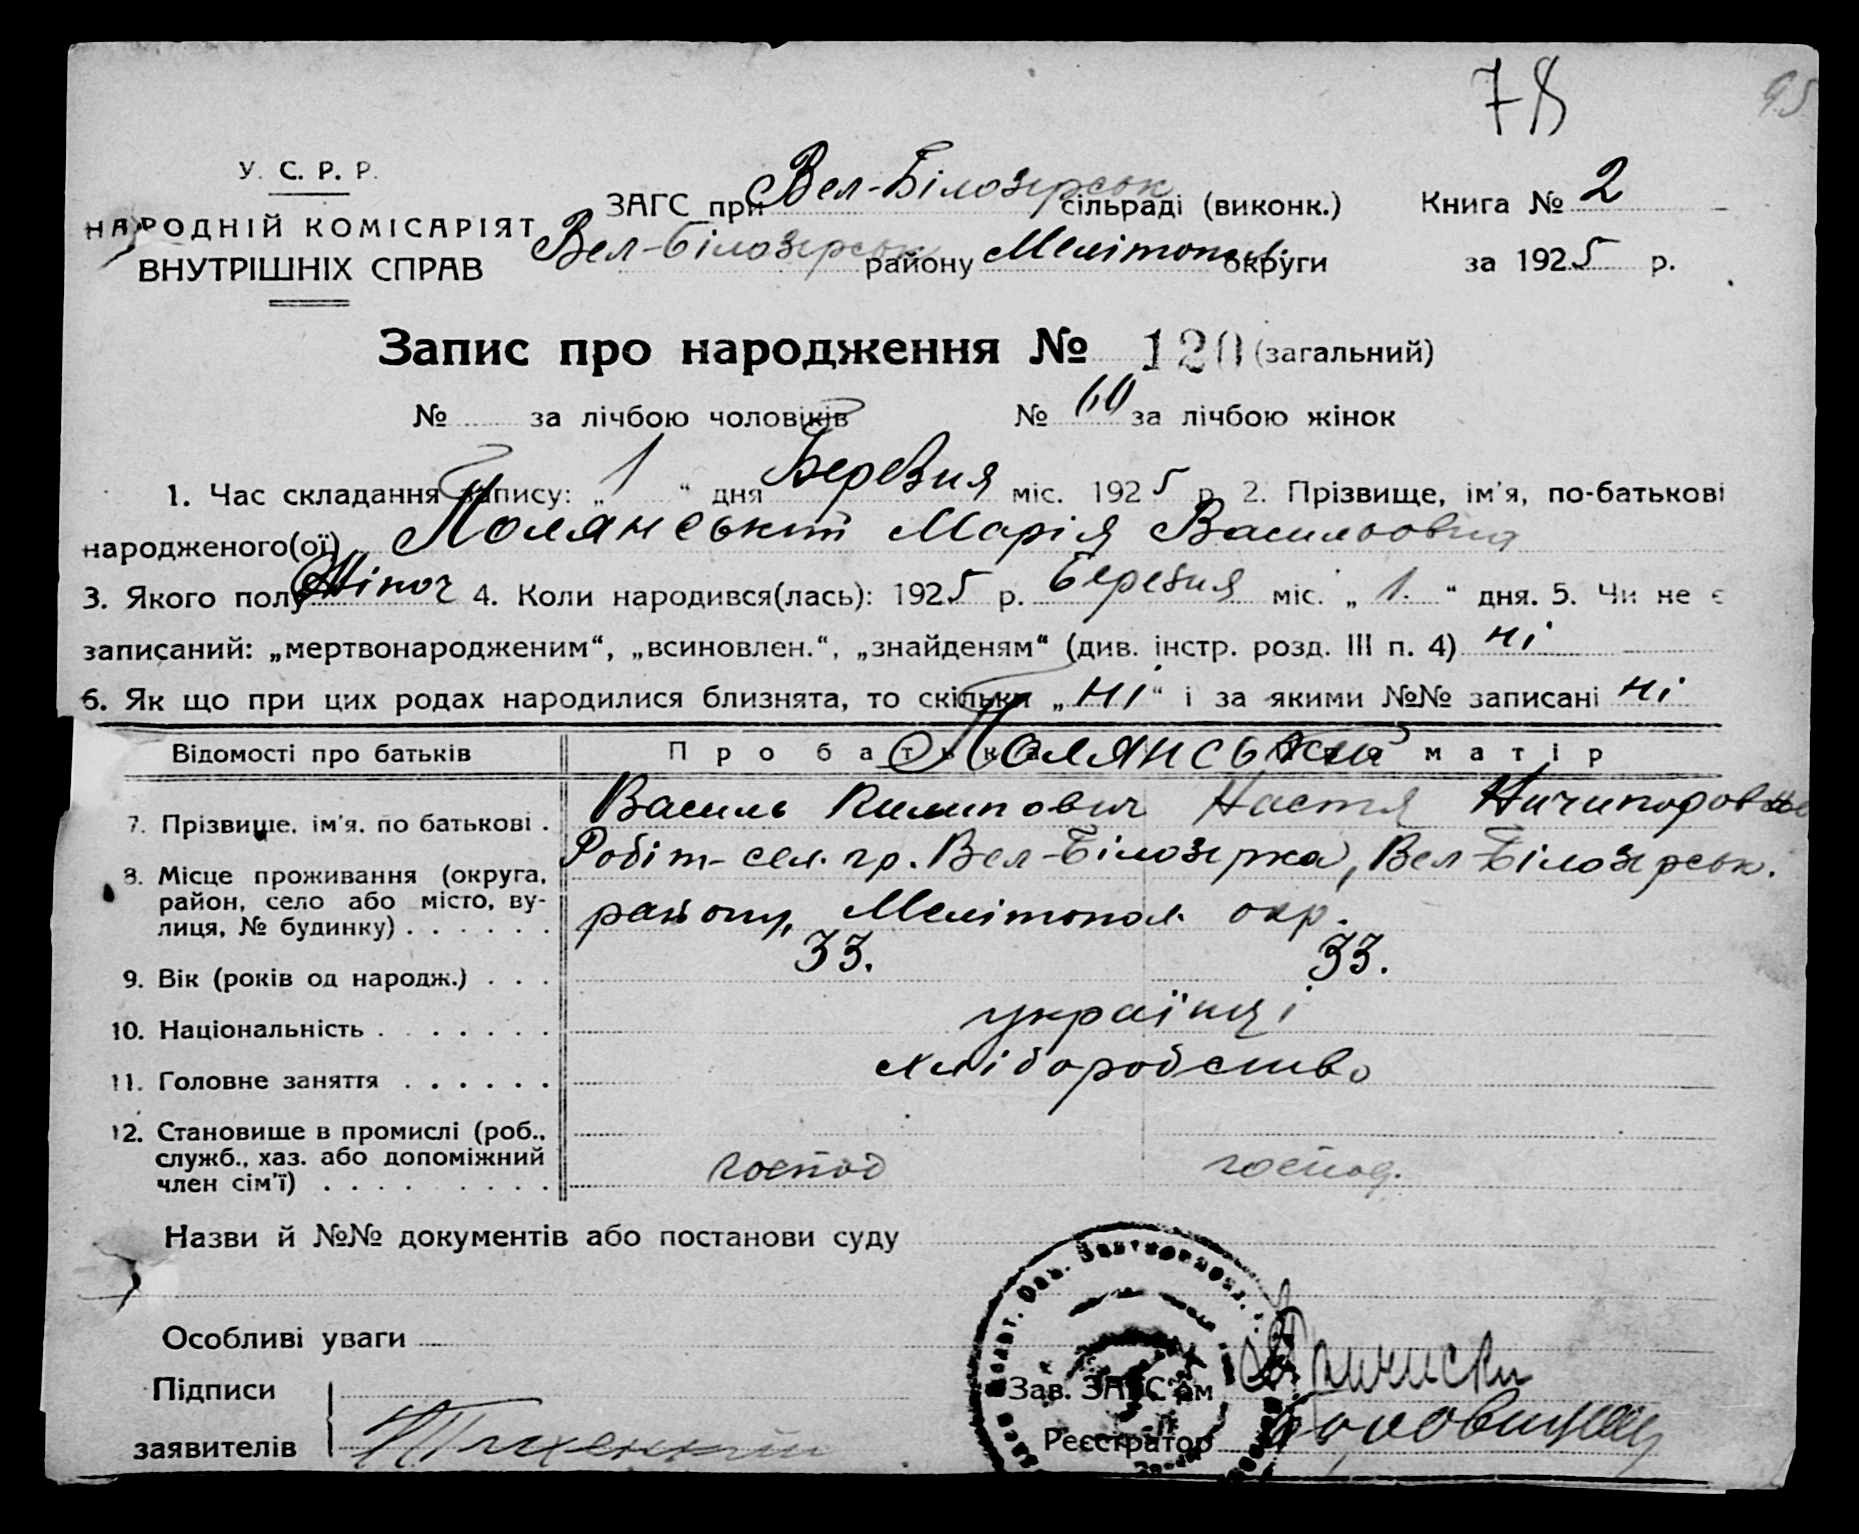 78
95
У. С. Р. Р.
НАРОДНІЙ КОМІСАРІЯТ
ВНУТРІШНІХ СПРАВ
ЗАГС при Вел-Білозерськ сільраді (виконк.) Книга № 2
Вел-Білозерськ району Мелітопол. округи за 1925 р.
Запис про народження № 120 (загальний)
№ за лічбою чоловіків № 60 за лічбою жінок
1. Час складання запису: „1“ дня Березня міс. 1925 р. 2. Прізвище, ім'я, по-батькові
народженого(ої) Полянський Марія Василовна
3. Якого полу Жіноч 4. Коли народився(лась): 1925 р. Березня міс. „1.“ дня. 5. Чи не є
записаний: „мертвонародженим“, „всиновлен.“, „знайденям“ (див. інстр. розд. III п. 4) ні
6. Як що при цих родах народилися близнята, то скільки „ні“ і за якими №№ записані ні
Відомості про батьків Про батька Полянський матір
7. Прізвище, ім'я, по батькові . Василь Пилипович Настя Ничипоровна
8. Місце проживання (округа, район, село або місто, ву-лиця, № будинку) . . . . . . Робіт-сел. гр. Вел-Білозерка, Вел-Білозерськ.
району, Мелітопол. окр.
9. Вік (років од народж.) . . . 33. 33.
10. Національність . . . . . . . українці
11. Головне заняття . . . . . . хліборобство
12. Становище в промислі (роб., служб., хаз. або допоміжний член сім'ї) . . . . . . . . . господ господ.
Назви й №№ документів або постанови суду
Особливі уваги
Підписи
заявителів
Зав. ЗАГС'ом
Реєстратор